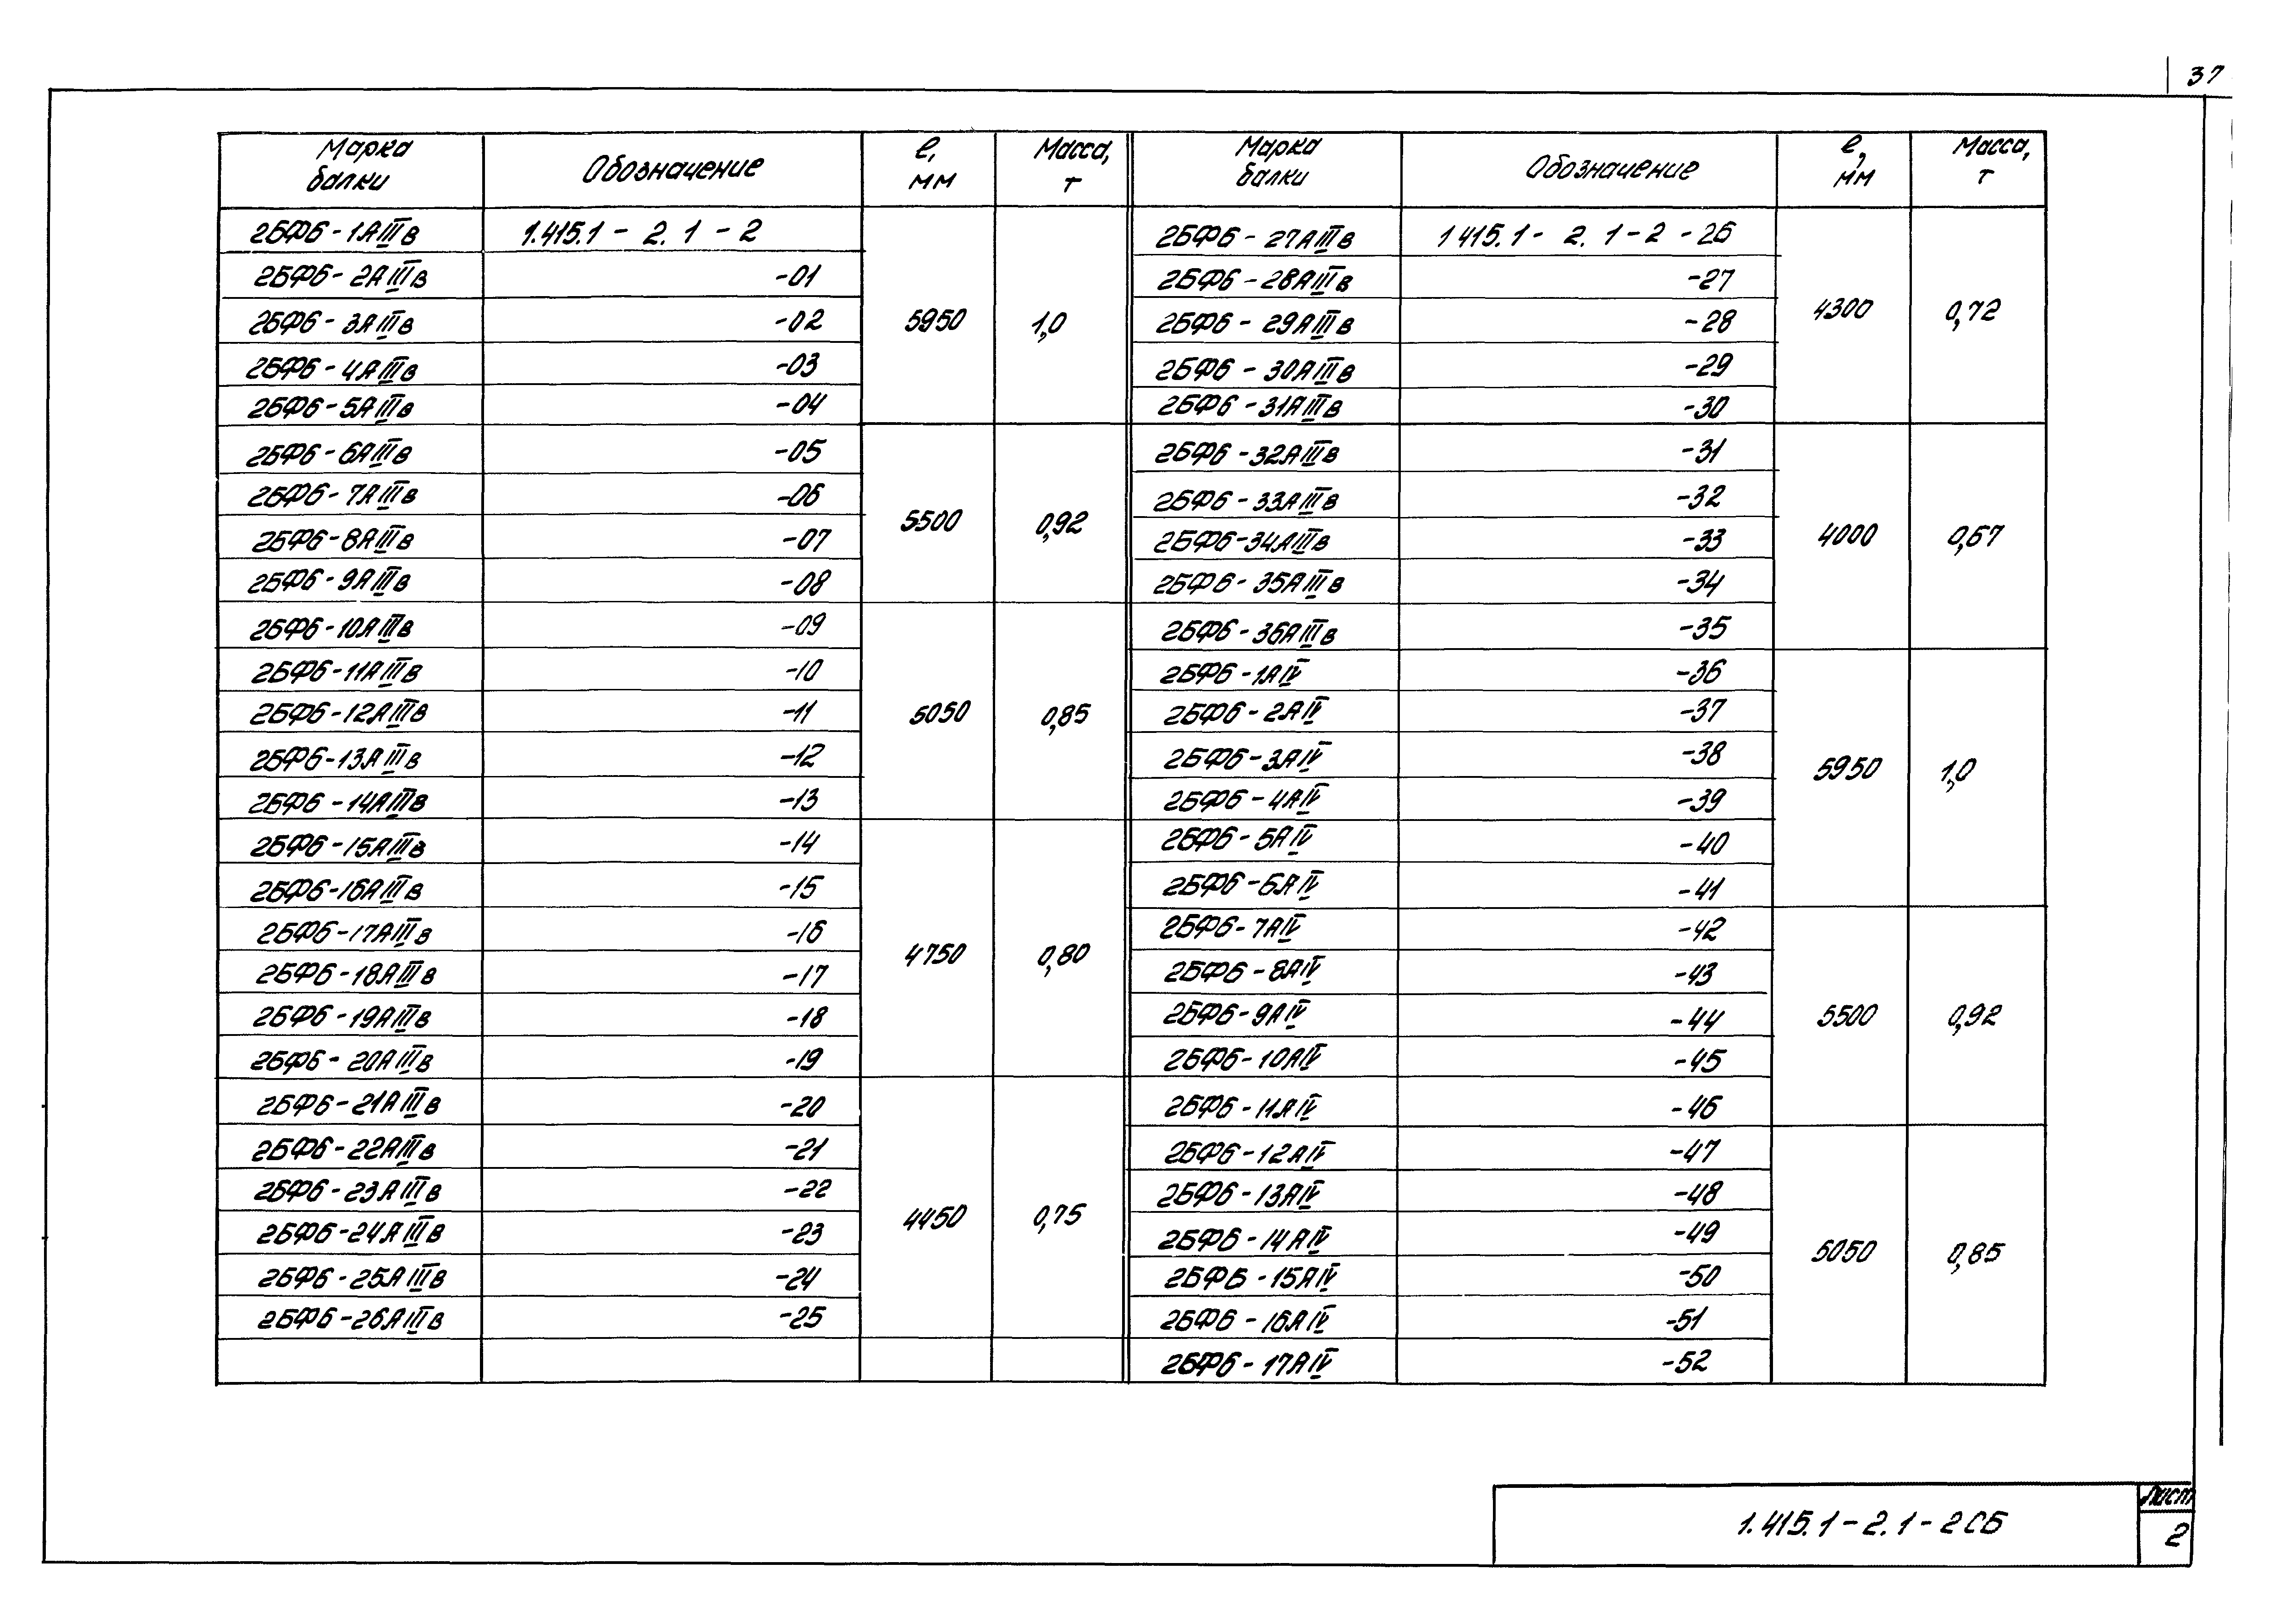 37
Марка балки | Обозначение | ℓ, мм | Масса, т | Марка балки | Обозначение | ℓ, мм | Масса, т
2БФ6-1АIIIв | 1.415.1-2.1-2 | 5950 | 1,0 | 2БФ6-27АIIIв | 1 415.1-2.1-2-26 | 4300 | 0,72
2БФ6-2АIIIв | -01 | 2БФ6-28АIIIв | -27
2БФ6-3АIIIв | -02 | 2БФ6-29АIIIв | -28
2БФ6-4АIIIв | -03 | 2БФ6-30АIIIв | -29
2БФ6-5АIIIв | -04 | 2БФ6-31АIIIв | -30
2БФ6-6АIIIв | -05 | 5500 | 0,92 | 2БФ6-32АIIIв | -31 | 4000 | 0,67
2БФ6-7АIIIв | -06 | 2БФ6-33АIIIв | -32
2БФ6-8АIIIв | -07 | 2БФ6-34АIIIв | -33
2БФ6-9АIIIв | -08 | 2БФ6-35АIIIв | -34
2БФ6-10АIIIв | -09 | 5050 | 0,85 | 2БФ6-36АIIIв | -35
2БФ6-11АIIIв | -10 | 2БФ6-1АIV | -36 | 5950 | 1,0
2БФ6-12АIIIв | -11 | 2БФ6-2АIV | -37
2БФ6-13АIIIв | -12 | 2БФ6-3АIV | -38
2БФ6-14АIIIв | -13 | 2БФ6-4АIV | -39
2БФ6-15АIIIв | -14 | 4750 | 0,80 | 2БФ6-5АIV | -40
2БФ6-16АIIIв | -15 | 2БФ6-6АIV | -41
2БФ6-17АIIIв | -16 | 2БФ6-7АIV | -42 | 5500 | 0,92
2БФ6-18АIIIв | -17 | 2БФ6-8АIV | -43
2БФ6-19АIIIв | -18 | 2БФ6-9АIV | -44
2БФ6-20АIIIв | -19 | 2БФ6-10АIV | -45
2БФ6-21АIIIв | -20 | 4450 | 0,75 | 2БФ6-11АIV | -46
2БФ6-22АIIIв | -21 | 2БФ6-12АIV | -47 | 5050 | 0,85
2БФ6-23АIIIв | -22 | 2БФ6-13АIV | -48
2БФ6-24АIIIв | -23 | 2БФ6-14АIV | -49
2БФ6-25АIIIв | -24 | 2БФ6-15АIV | -50
2БФ6-26АIIIв | -25 | 2БФ6-16АIV | -51
2БФ6-17АIV | -52
1.415.1-2.1-2СБ
Лист
2